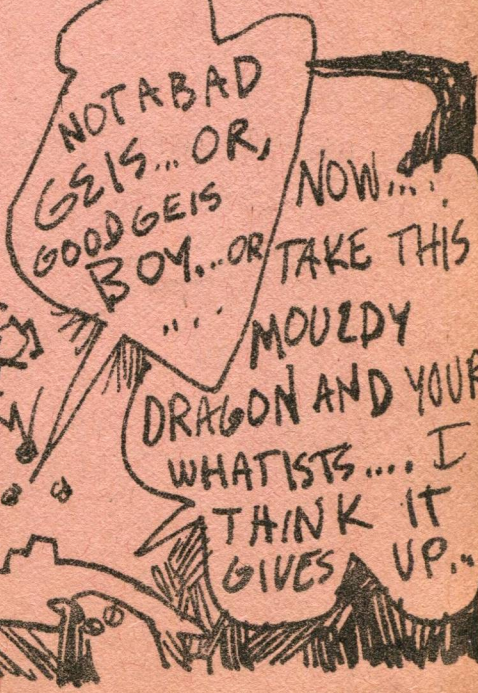 NOT A BAD
GEIS... OR,
GOOD GEIS
BOY,...OR
....
NOW....
TAKE THIS
MOULDY
DRAGON AND YOUR
WHATISTS.... I
THINK IT
GIVES UP...